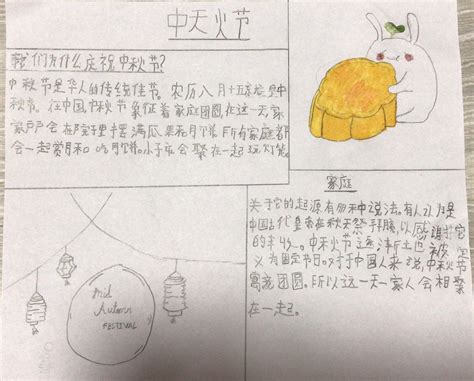 中天火节
我们为什么庆祝中秋节?
中秋节是华人的传统佳节。农历八月十五就是中
秋节。在中国,中秋节象征着家庭团圆,在这一天家
家户户会在院子里摆满瓜果和月饼。所有家庭都
会一起赏月和吃月饼。小孩也会聚在一起玩灯笼。
家庭
关于它的起源有多种说法。有人认为是
中国古代皇帝在秋天祭拜月，以感谢它
的丰收。中秋节
义为固定节日。对于中国人来说,中秋节
寓意团圆。所以这一天一家人会相聚
在一起。
Mid
Autumn
FESTIVAL